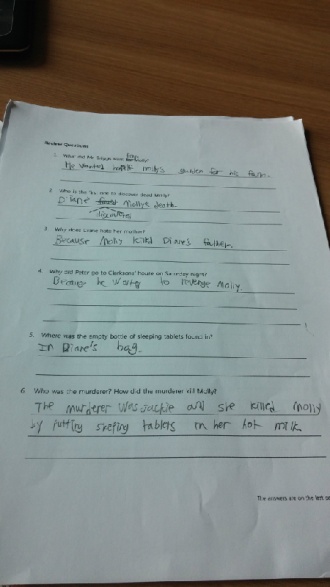 Review Questions
1. What did Mr. want from Molly?
He wanted molly's garden for his farm.
2. Who is the first one to discover dead Molly?
Diane Mollys death
discovers
3. Why does Diane hate her mother?
Because Molly killed Diane's father.
4. Why did Peter go to Clarksons' house on Saturday night?
he to revenge Molly
5. Where was the empty bottle of sleeping tablets found in?
In Diane's bag.
6. Who was the murderer? How did the murderer kill Molly?
The murderer was Jackie and she killed Molly
by putting sleping tablets in her hot milk
The answers are on the